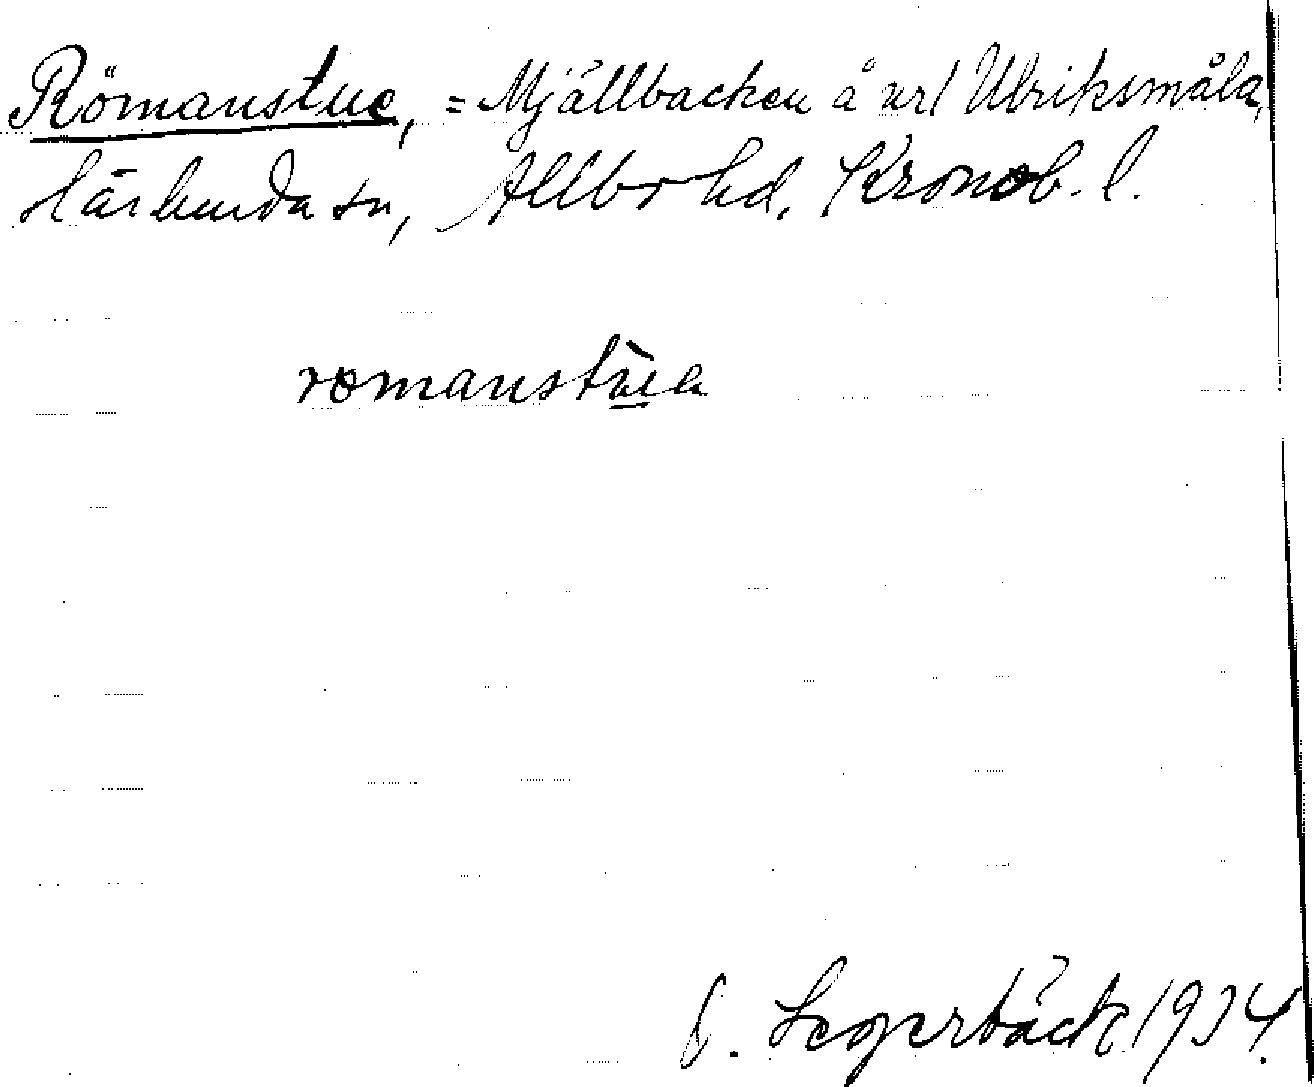 Römanstue, = Mjällbacken å nr 1 Ulriksmåla,
Härlunda sn, Allbo hd, Kronob. l.
romanstuːa
Segerbäck 1934.